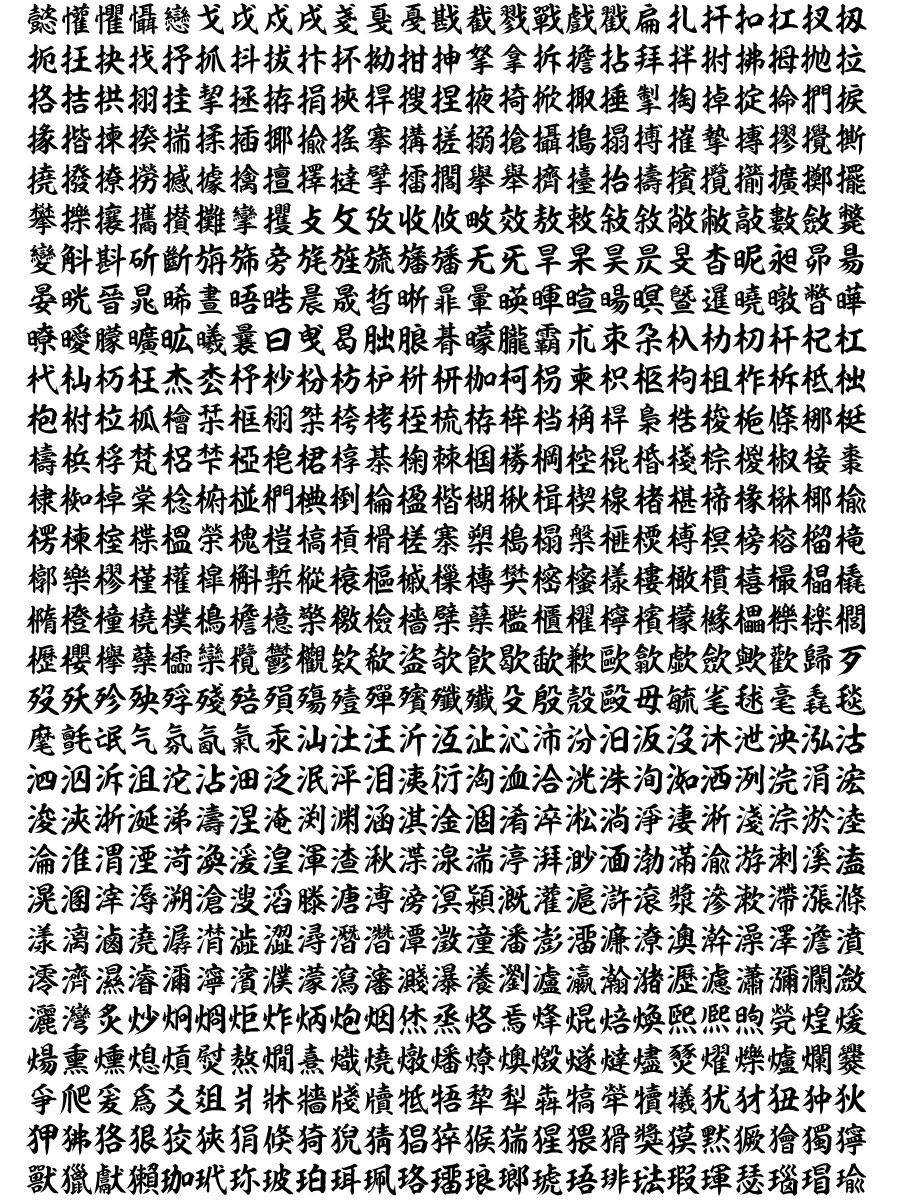 懿懽懼懾戀戈戉戍戌戔戛戞戡截戮戰戲戳扁扎扞扣扛扠扨
扼抂抉找抒抓抖拔抃抔拗拑抻拏拿拆擔拈拜拌拊拂拇抛拉
挌拮拱挧挂挈拯拵捐挾捍搜捏掖掎掀掫捶掣掏掉掟掵捫捩
掾揩揀揆揣揉插揶揄搖搴搆搓搦搶攝搗搨搏摧摯摶摎攪撕
撓撥撩撈撼據擒擅擇撻擘擂擱擧舉擠擡抬擣擯攬擶擴擲擺
攀擽攘攜攅攤攣攫攴攵攷收攸畋效敖敕敍敘敞敝敲數斂斃
變斛斟斫斷旃旆旁旄旌旒旛旙无旡旱杲昊昃旻杳昵昶昴昜
晏晄晉晁晞晝晤晧晨晟晢晰暃暈暎暉暄暘暝曁暹曉暾暼曄
暸曖曚曠昿曦曩曰曵曷朏朖朞朦朧霸朮朿朶杁朸朷杆杞杠
杙杣杤枉杰枩杼杪枌枋枦枡枅枷柯枴柬枳柩枸柤柞柝柢柮
枹柎柆柧檜栞框栩桀桍栲桎梳栫桙档桷桿梟梏梭梔條梛梃
檮梹桴梵梠梺椏梍桾椁棊椈棘椢椦棡椌棍棔棧棕椶椒椄棗
棣椥棹棠棯椨椪椚椣椡棆楹楷楜楸楫楔楾楮椹楴椽楙椰楡
楞楝榁楪榲榮槐榿槁槓榾槎寨槊槝榻槃榧樮榑榠榜榕榴槞
槨樂樛槿權槹槲槧樅榱樞槭樔槫樊樒櫁樣樓橄樌橲樶橸橇
橢橙橦橈樸樢檐檍檠檄檢檣檗蘗檻櫃櫂檸檳檬櫞櫑櫟檪櫚
櫪櫻欅蘖櫺欒欖鬱欟欸欷盜欹飮歇歃歉歐歙歔歛歟歡歸歹
歿殀殄殃殍殘殕殞殤殪殫殯殲殱殳殷殼毆毋毓毟毬毫毳毯
麾氈氓气氛氤氣汞汕汢汪沂沍沚沁沛汾汨汳沒沐泄泱泓沽
泗泅泝沮沱沾沺泛泯泙泪洟衍洶洫洽洸洙洵洳洒洌浣涓浤
浚浹浙涎涕濤涅淹渕渊涵淇淦涸淆淬淞淌淨淒淅淺淙淤淕
淪淮渭湮渮渙湲湟渾渣湫渫湶湍渟湃渺湎渤滿渝游溂溪溘
滉溷滓溽溯滄溲滔滕溏溥滂溟潁漑灌滬滸滾漿滲漱滯漲滌
漾漓滷澆潺潸澁澀潯潛濳潭澂潼潘澎澑濂潦澳澣澡澤澹濆
澪濟濕濬濔濘濱濮濛瀉瀋濺瀑瀁瀏瀘瀛瀚潴瀝濾瀟瀰瀾瀲
灑灣炙炒炯烱炬炸炳炮烟烋烝烙焉烽焜焙煥煕熈煦煢煌煖
煬熏燻熄熕熨熬燗熹熾燒燉燔燎燠燬燧燵燼燹燿爍爐爛爨
爭爬爰爲爻爼爿牀牆牋牘牴牾犂犁犇犒犖犢犧犹犲狃狆狄
狎狒狢狠狡狹狷倏猗猊猜猖猝猴猯猩猥猾獎獏默獗獪獨獰
獸獵獻獺珈玳珎玻珀珥珮珞璢琅瑯琥珸琲琺瑕琿瑟瑙瑁瑜